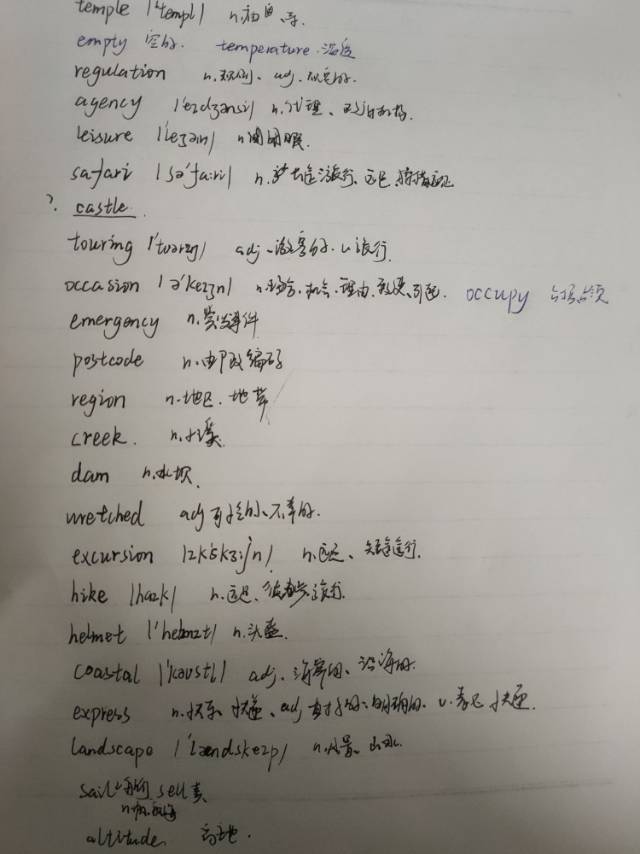 temple |'templ| n.
empty 空的. temperature 温度
regulation n.规则、adj.规定的.
agency |'eɪdʒənsi| n.代理、政府机构.
leisure |'leʒə| n.闲暇.
safari |sə'fa:ri| n.
?. castle.
touring |'tʊərɪŋ| adj.游客的. v.旅行.
occasion |ə'keɪʒn| n.场合.机会.理由. occupy 占领
emergency n.突发事件
postcode n.邮政编码
region n.地区.地带
creek. n.小溪
dam n.水坝.
wretched adj 可怜的、不幸的.
excursion n.远足、短途旅行.
hike |haɪk| n.远足、徒步旅行.
helmet |'helmɪt| n.头盔.
coastal |'kəʊstl| adj.海岸的、沿海的.
express n.快车、快递、adj 明确的. v.表达 快递.
landscape |'lændskeɪp| n.风景、山水.
sail 航行 sell 卖
n.帆 航海
altitude 高地.